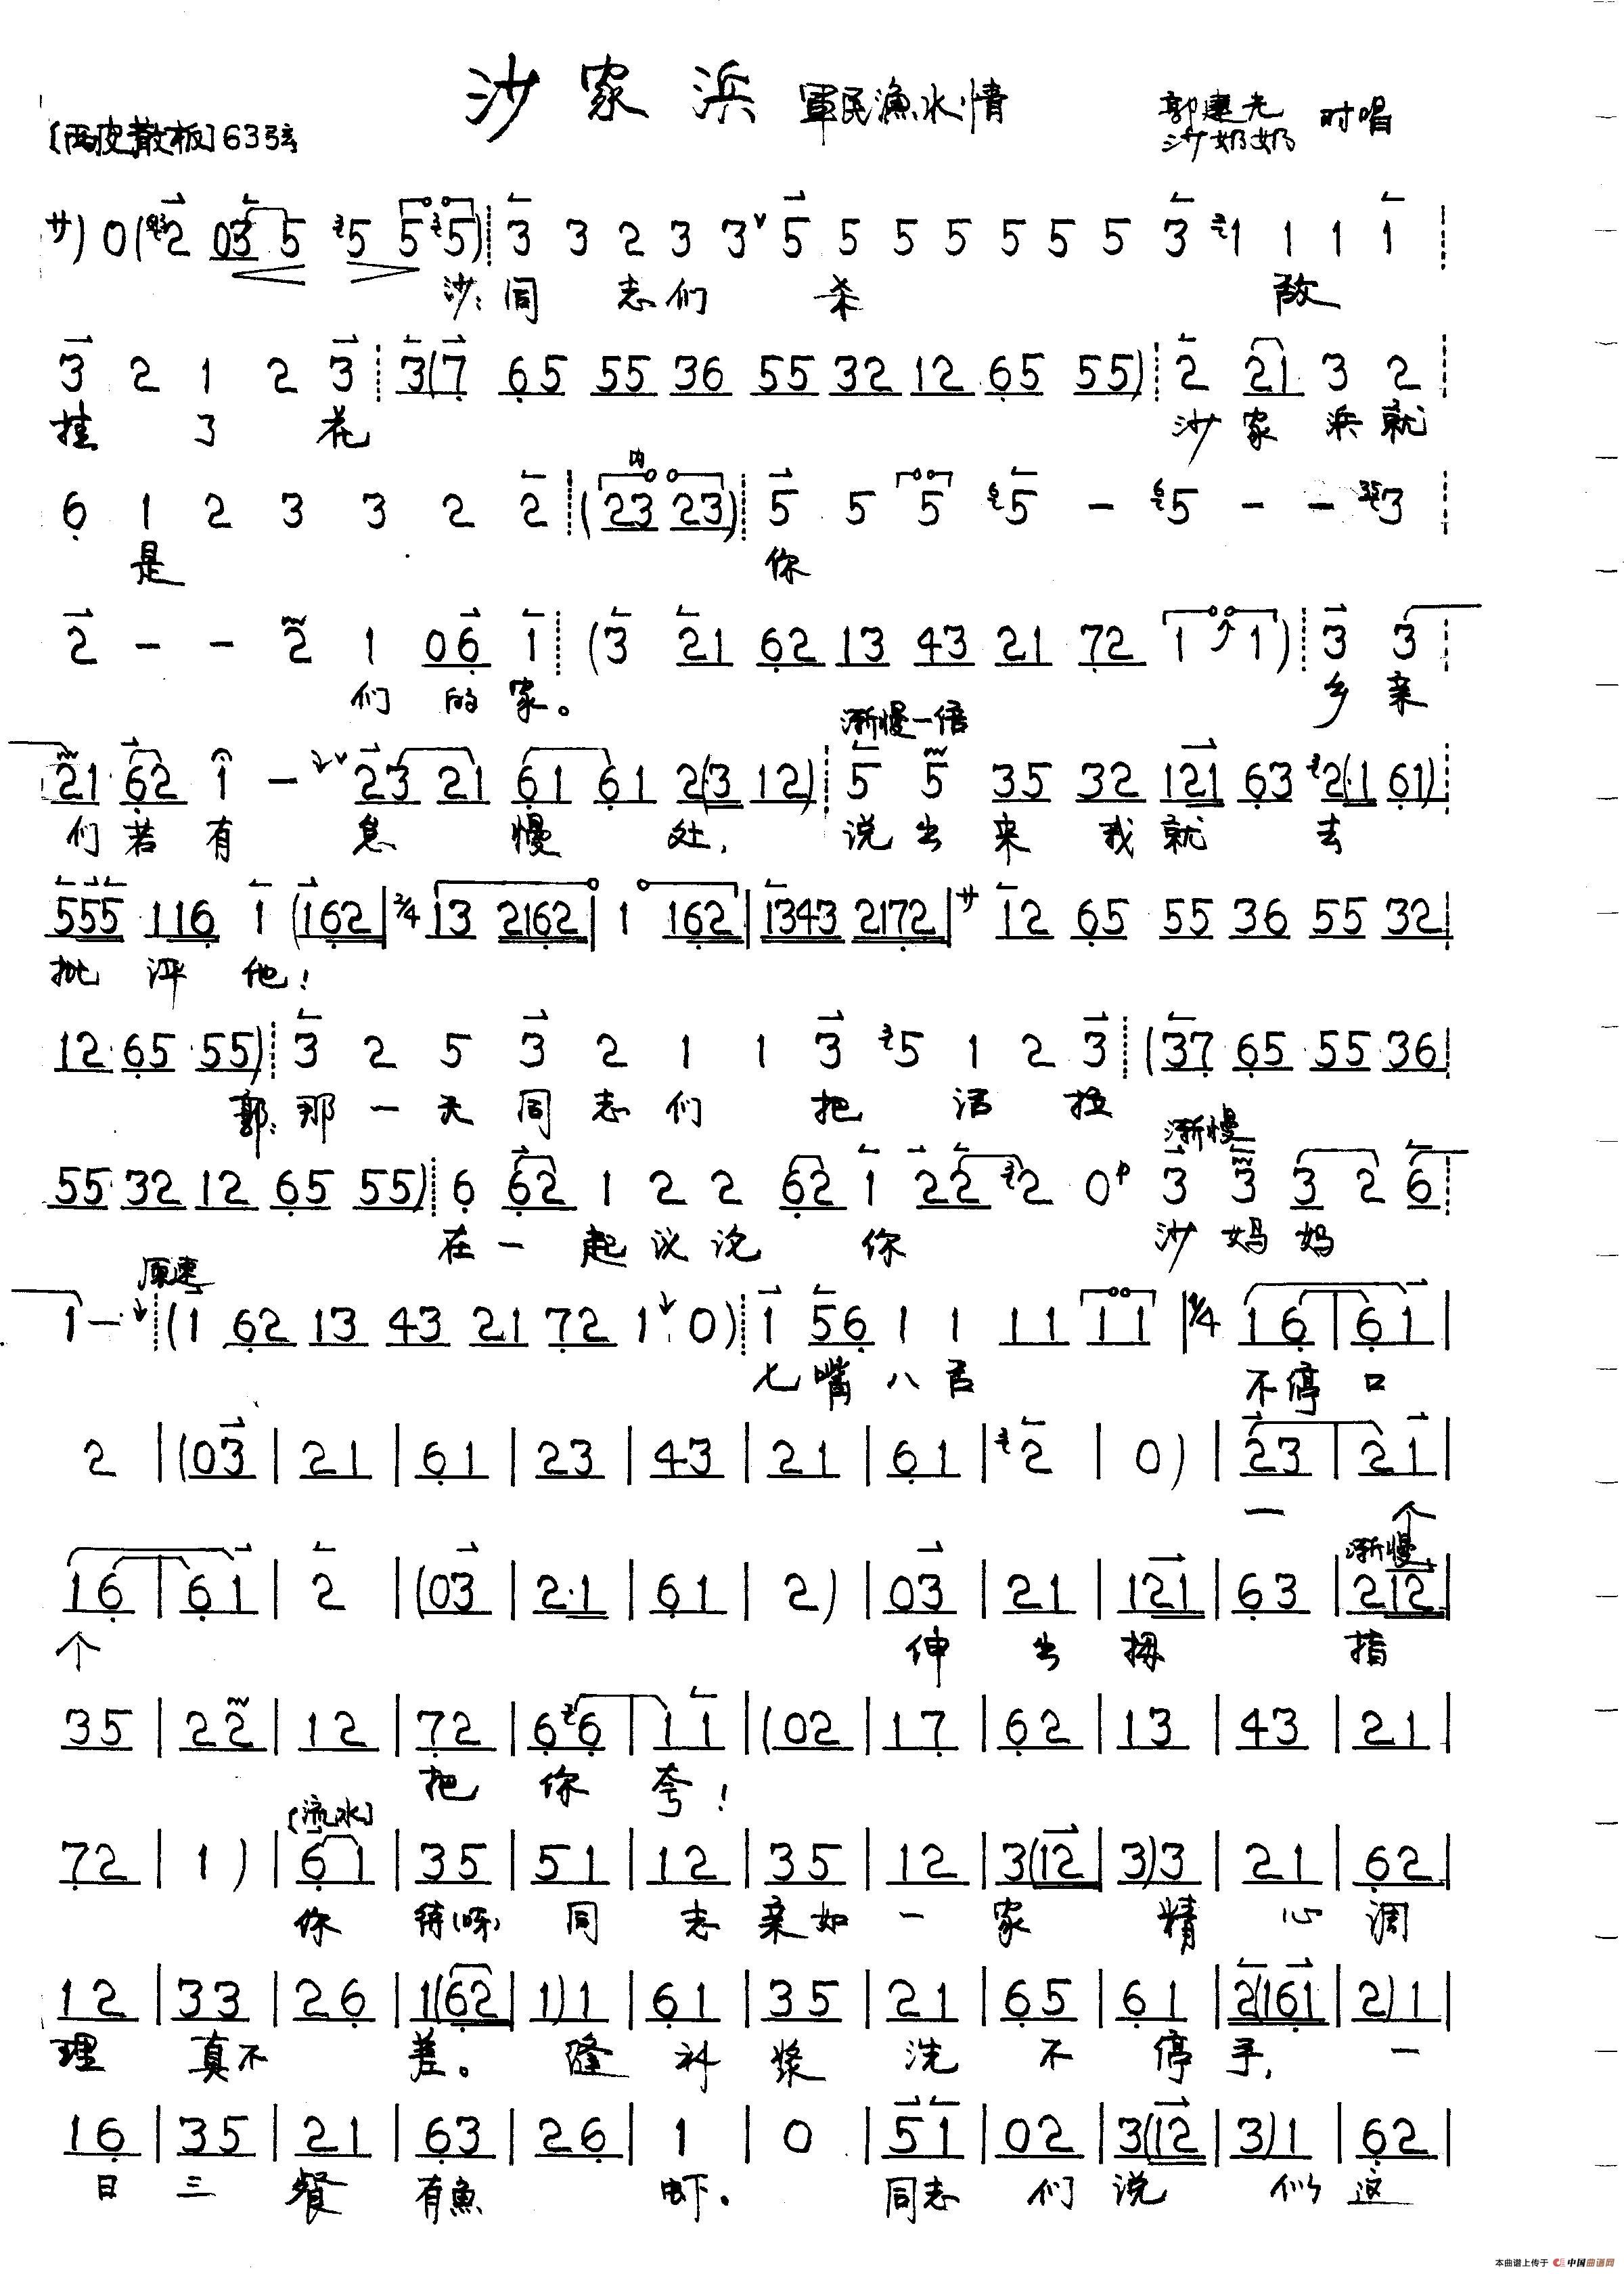 沙家浜 軍民漁水情
郭建光
沙奶奶 对唱
〔西皮散板〕63弦
サ) 0(2 03 5 5 5 5) 3 3 2 3 3 5 5 5 5 5 5 5 3 1 1 1 1
沙:同 志们 杀 敌
3 2 1 2 3 3(7 65 55 36 55 32 12 65 55) 2 21 3 2
挂 了 花 沙 家 浜 就
6 1 2 3 3 2 2 (23 23) 5 5 5 5 - 5 - - 3
内
是 你
2 - - 2 1 06 1 (3 21 62 13 43 21 72 1 1) 3 3
们 的 家。 乡 亲
渐慢一倍
21 62 1 - 23 21 61 61 2(3 12) 5 5 35 32 121 63 2(·1 61)
们 若 有 怠 慢 处, 说 出 来 我 就 去
555 116 1 (162 | 2/4 13 2162 | 1 162 | 1343 2172 | サ 12 65 55 36 55 32
批 评 他!
12 65 55) 3 2 5 3 2 1 1 3 5 1 2 3 (37 65 55 36
郭:那 一 天 同 志 们 把 话 拉
渐慢
55 32 12 65 55) 6 62 1 2 2 62 1 22 2 0 3 3 3 2 6
在 一 起 议 论 你 沙 妈 妈
原速
1 - (1 62 13 43 21 72 1 0) 1 56 1 1 11 11 | 1/4 16 | 61 |
七 嘴 八 舌 不 停 口
2 | (03 | 21 | 61 | 23 | 43 | 21 | 61 | 2 | 0) | 23 | 21 |
一 个
渐慢
16 | 61 | 2 | (03 | 2·1 | 61 | 2) | 03 | 21 | 121 | 63 | 212 |
个 伸 出 拇 指
35 | 22 | 12 | 72 | 66 | 11 | (02 | 17 | 62 | 13 | 43 | 21 |
把 你 夸!
〔流水〕
72 | 1) | 61 | 35 | 51 | 12 | 35 | 12 | 3(12 | 3)3 | 21 | 62 |
你 待(呀) 同 志 亲 如 一 家 精 心 调
12 | 33 | 26 | 1(62 | 1)1 | 61 | 35 | 21 | 65 | 61 | 2(161 | 2)1 |
理 真 不 差。 缝 补 浆 洗 不 停 手, 一
16 | 35 | 21 | 63 | 26 | 1 | 0 | 51 | 02 | 3(12 | 3)1 | 62 |
日 三 餐 有 魚 虾。 同志 们 说 似 这
本曲谱上传于 中国曲谱网